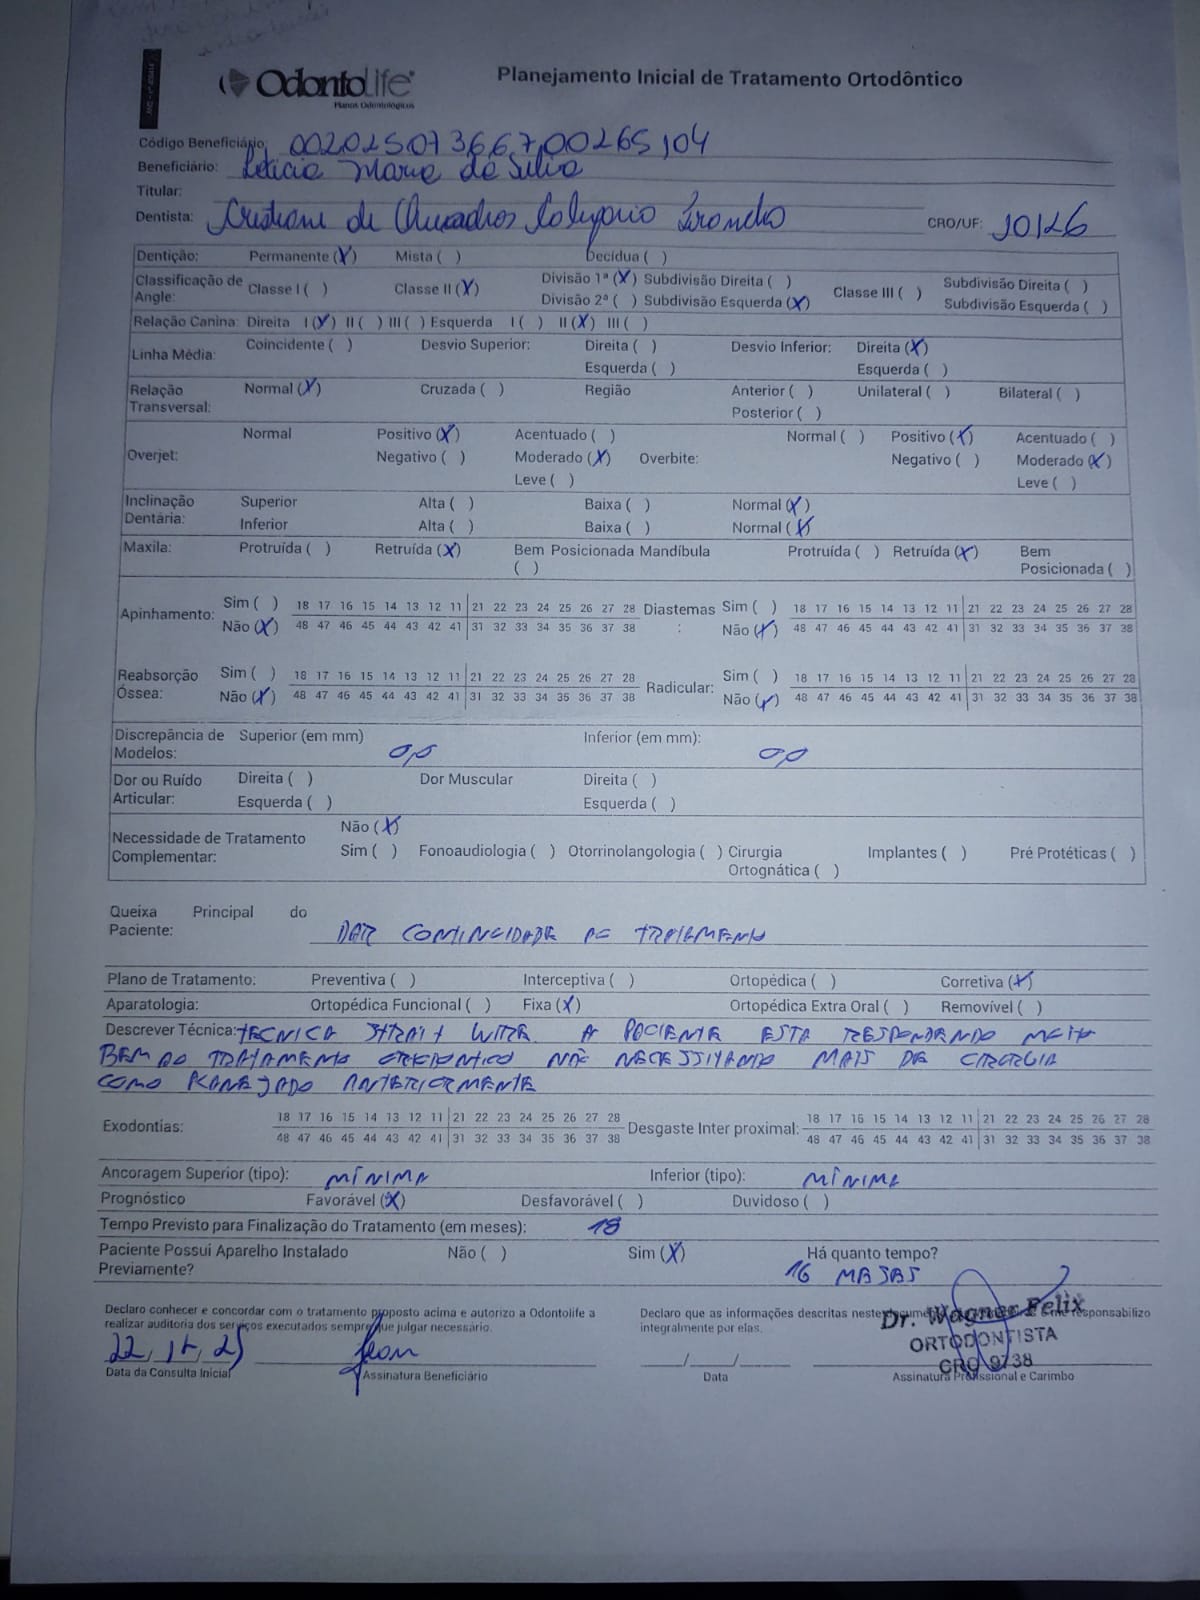 OdontoLife
Planos Odontológicos
Planejamento Inicial de Tratamento Ortodôntico
Código Beneficiário: 00202507366700265104
Beneficiário: Leticia Maria da Silva
Titular:
Dentista: Cristiani de CRO/UF: 10126
Dentição: Permanente (X) Mista ( ) Decídua ( )
Classificação de Angle: Classe I ( ) Classe II (X) Divisão 1ª (X) Subdivisão Direita ( ) Classe III ( ) Subdivisão Direita ( )
Divisão 2ª ( ) Subdivisão Esquerda (X) Subdivisão Esquerda ( )
Relação Canina: Direita I (X) II ( ) III ( ) Esquerda I ( ) II (X) III ( )
Linha Média: Coincidente ( ) Desvio Superior: Direita ( ) Desvio Inferior: Direita (X)
Esquerda ( ) Esquerda ( )
Relação Transversal: Normal (X) Cruzada ( ) Região Anterior ( ) Unilateral ( ) Bilateral ( )
Posterior ( )
Overjet: Normal Positivo (X) Acentuado ( ) Normal ( ) Positivo (X) Acentuado ( )
Negativo ( ) Moderado (X) Overbite: Negativo ( ) Moderado (X)
Leve ( ) Leve ( )
Inclinação Dentária: Superior Alta ( ) Baixa ( ) Normal (X)
Inferior Alta ( ) Baixa ( ) Normal (X)
Maxila: Protruída ( ) Retruída (X) Bem Posicionada ( ) Mandíbula Protruída ( ) Retruída (X) Bem Posicionada ( )
Apinhamento: Sim ( ) 18 17 16 15 14 13 12 11 21 22 23 24 25 26 27 28 Diastemas: Sim ( ) 18 17 16 15 14 13 12 11 21 22 23 24 25 26 27 28
Não (X) 48 47 46 45 44 43 42 41 31 32 33 34 35 36 37 38 Não (X) 48 47 46 45 44 43 42 41 31 32 33 34 35 36 37 38
Reabsorção Óssea: Sim ( ) 18 17 16 15 14 13 12 11 21 22 23 24 25 26 27 28 Radicular: Sim ( ) 18 17 16 15 14 13 12 11 21 22 23 24 25 26 27 28
Não (X) 48 47 46 45 44 43 42 41 31 32 33 34 35 36 37 38 Não (X) 48 47 46 45 44 43 42 41 31 32 33 34 35 36 37 38
Discrepância de Modelos: Superior (em mm) 0,0 Inferior (em mm): 0,0
Dor ou Ruído Articular: Direita ( ) Dor Muscular Direita ( )
Esquerda ( ) Esquerda ( )
Necessidade de Tratamento Complementar: Não (X)
Sim ( ) Fonoaudiologia ( ) Otorrinolangologia ( ) Cirurgia Ortognática ( ) Implantes ( ) Pré Protéticas ( )
Queixa Principal do Paciente: DAR CONTINCIDADE DE TRATAMENTO
Plano de Tratamento: Preventiva ( ) Interceptiva ( ) Ortopédica ( ) Corretiva (X)
Aparatologia: Ortopédica Funcional ( ) Fixa (X) Ortopédica Extra Oral ( ) Removível ( )
Descrever Técnica: TECNICA STRAIT WIRE. A PACIENTE ESTA RESPONDENDO MUITO
BEM AO TRATAMENTO ORTODONTICO NÃO NECESSITANDO MAIS DE CIRURGIA
COMO PLANEJADO ANTERIORMENTE
Exodontias: 18 17 16 15 14 13 12 11 21 22 23 24 25 26 27 28 Desgaste Inter proximal: 18 17 16 15 14 13 12 11 21 22 23 24 25 26 27 28
48 47 46 45 44 43 42 41 31 32 33 34 35 36 37 38 48 47 46 45 44 43 42 41 31 32 33 34 35 36 37 38
Ancoragem Superior (tipo): MÍNIMA Inferior (tipo): MÍNIMA
Prognóstico Favorável (X) Desfavorável ( ) Duvidoso ( )
Tempo Previsto para Finalização do Tratamento (em meses): 18
Paciente Possui Aparelho Instalado Previamente? Não ( ) Sim (X) Há quanto tempo?
16 MESES
Declaro conhecer e concordar com o tratamento proposto acima e autorizo a Odontolife a
realizar auditoria dos serviços executados sempre que julgar necessário.
Declaro que as informações descritas neste responsabilizo
integralmente por elas.
Dr. Wagner Felix
ORTODONTISTA
CRO 9738
Data da Consulta Inicial Assinatura Beneficiário Data Assinatura Profissional e Carimbo